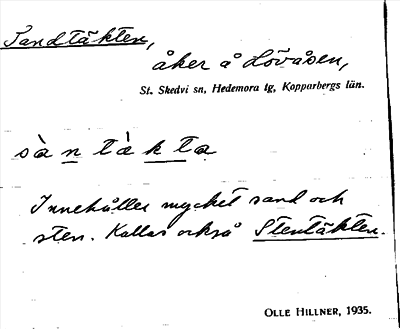 Sandtäkten,
åker å Lövåsen,
St. Skedvi sn, Hedemora tg, Kopparbergs län.
sàntàkta
Innehåller mycket sand och
sten. Kallas också Stentäkten.
OLLE HILLNER, 1935.